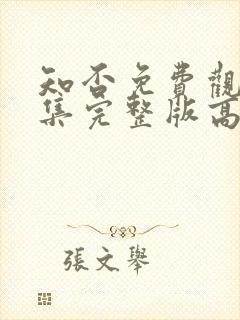 知否免費觀
集完整版高
張文舉